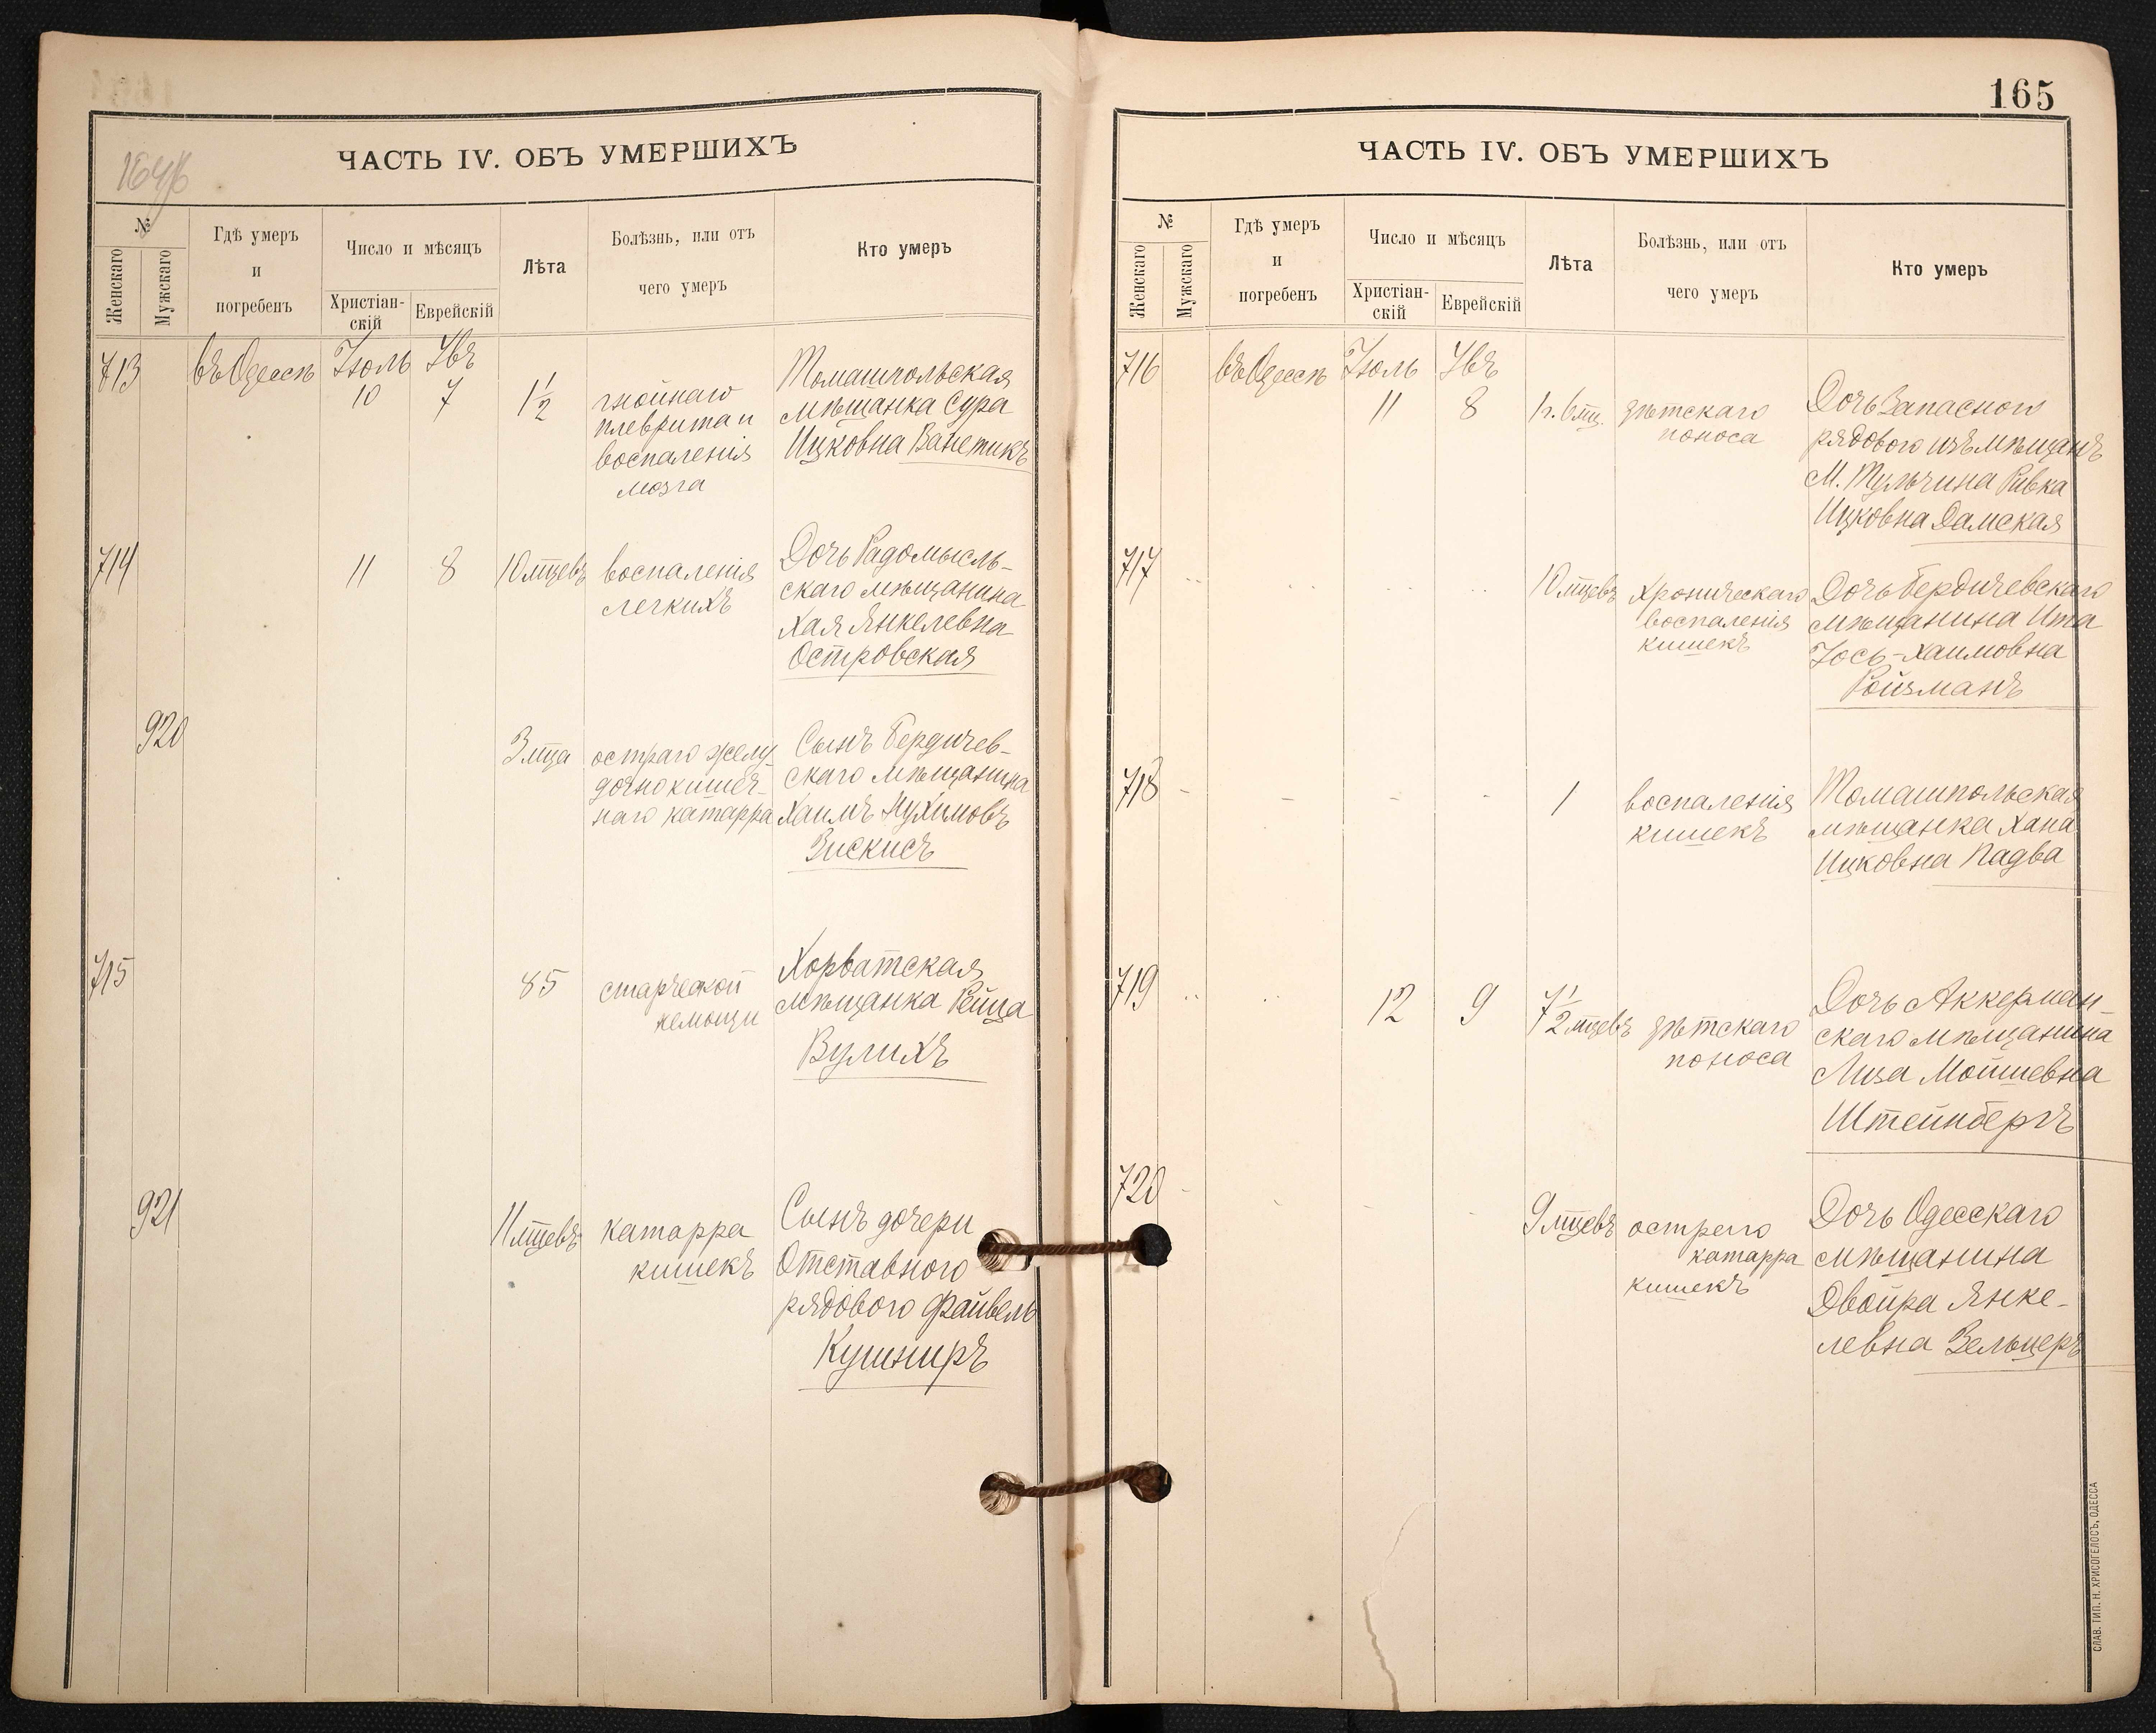 164 об
ЧАСТЬ IV. ОБЪ УМЕРШИХЪ
№
Женскаго
Мужскаго
Гдѣ умеръ
и
погребенъ
Число и мѣсяцъ
Христіан-
скій
Еврейскій
Лѣта
Болѣзнь, или отъ
чего умеръ
Кто умеръ
713
въ Одессѣ
Іюль
10
Ѳвъ
7
1 1/2
гнойнаго
плеврита и
воспаленія
мозга
Томашпольская
мѣщанка Сура
Ицковна Ванетикъ
714
11
8
10 мцевъ
воспаленія
легкихъ
Дочь Радомысль-
скаго мѣщанина
Хая Янкелевна
Островская
920
3 мца
остраго желу-
дочнокишеч-
наго катарра
Сынъ Бердичев-
скаго мѣщанина
Хаимъ Нухимовъ
Зискисъ
715
85
старческой
немощи
Хорватская
мѣщанка Рейца
Вулихъ
921
11 мцевъ
катарра
кишекъ
Сынъ дочери
Отставного
рядового Файвель
Кушниръ
165
ЧАСТЬ IV. ОБЪ УМЕРШИХЪ
№
Женскаго
Мужскаго
Гдѣ умеръ
и
погребенъ
Число и мѣсяцъ
Христіан-
скій
Еврейскій
Лѣта
Болѣзнь, или отъ
чего умеръ
Кто умеръ
716
въ Одессѣ
Іюль
11
Ѳвъ
8
1 г. 6 мц.
дѣтскаго
поноса
Дочь Запасного
рядового изъ мѣщанъ
М. Тульчина Ривка
Ицковна Дамская
717
10 мцевъ
Хроническаго
воспаленія
кишекъ
Дочь Бердичевскаго
мѣщанина Ита
Іось-Хаимовна
Ройзманъ
718
1
воспаленія
кишекъ
Томашпольская
мѣщанка Хана
Ицковна Падва
719
12
9
7 1/2 мцевъ
дѣтскаго
поноса
Дочь Аккерман-
скаго мѣщанина
Лиза Мошевна
Штейнбергъ
720
9 мцевъ
остраго
катарра
кишекъ
Дочь Одесскаго
мѣщанина
Двойра Янке-
левна Зельцеръ
СЛАВ. ТИП. Н. ХРИСОГЕЛОСЪ, ОДЕССА